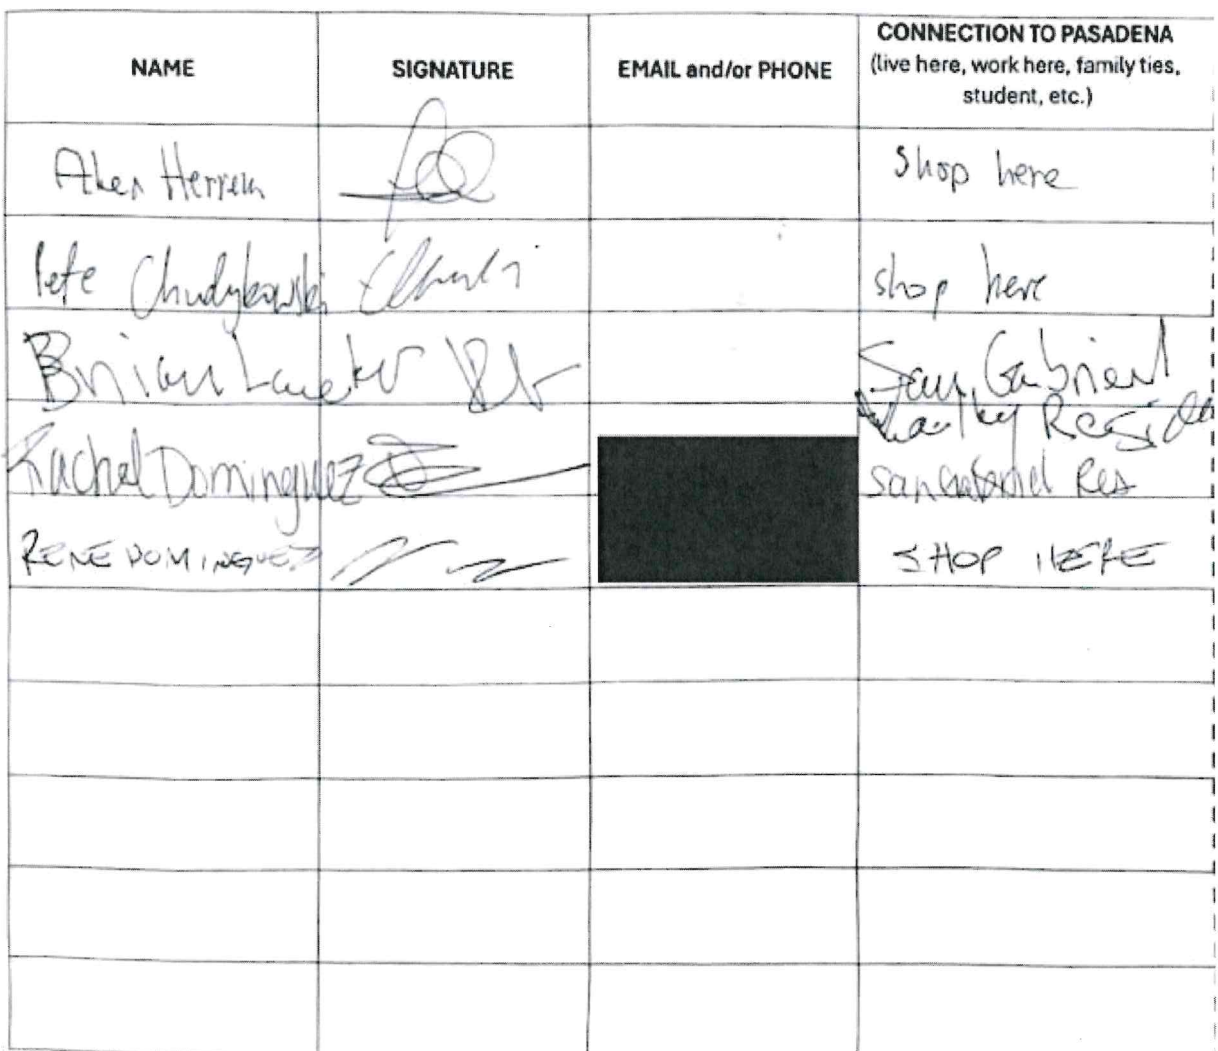 NAME SIGNATURE EMAIL and/or PHONE CONNECTION TO PASADENA
(live here, work here, family ties,
student, etc.)
Herrera Shop here
Pete Chudykowski shop here
Brian San Gabriel
Valley Reside
Rachel Dominguez San Gabriel Res
RENE DOMINGUEZ SHOP HERE